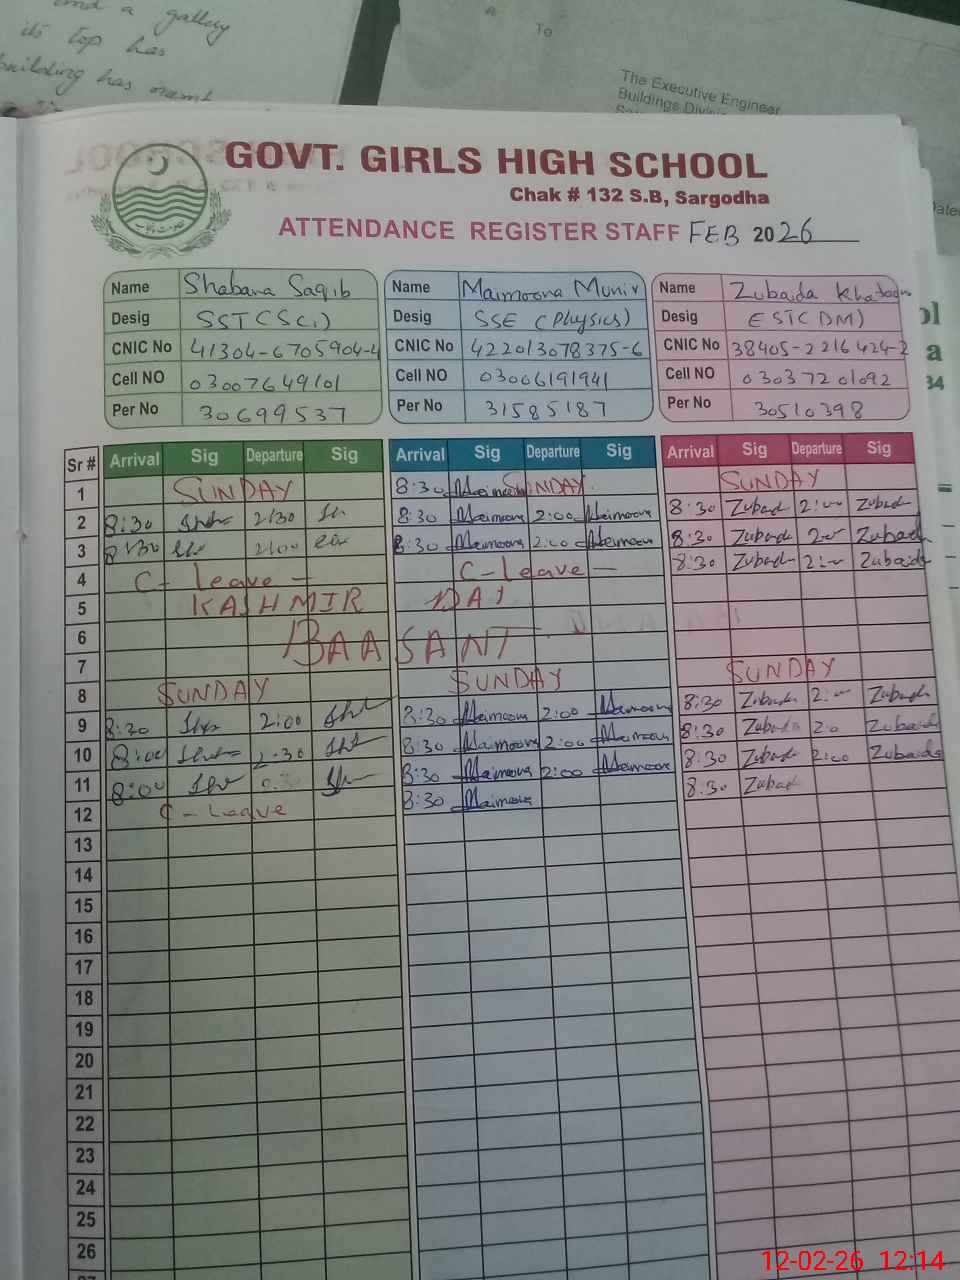 and a gallery
its top has
building has
To
The Executive Engineer
Buildings Divis
GOVT. GIRLS HIGH SCHOOL
Chak # 132 S.B, Sargodha
ATTENDANCE REGISTER STAFF FEB 2026
Name Shabana Saqib Name Maimoona Munir Name Zubaida Khatoon
Desig SST (Sci) Desig SSE (Physics) Desig EST (DM)
CNIC No 41304-6705904-4 CNIC No 422013078375-6 CNIC No 38405-2216424-2
Cell NO 03007649101 Cell NO 03006191941 Cell NO 03037201092
Per No 30699537 Per No 31585187 Per No 30510398
Sr # Arrival Sig Departure Sig Arrival Sig Departure Sig Arrival Sig Departure Sig
1 SUNDAY 8:30 Maimoona SUNDAY SUNDAY
2 8:30 2:30 8:30 Maimoona 2:00 Maimoona 8:30 Zubaid 2:00 Zubaid
3 8:30 2:00 8:30 Maimoona 2:00 Maimoona 8:30 Zubaid 2:00 Zubaid
4 C-leave - C-leave - 8:30 Zubaid 2:00 Zubaida
5 KASHMIR DAY
6 BAASANT
7
8 SUNDAY SUNDAY SUNDAY
9 8:30 2:00 8:30 Maimoona 2:00 Maimoona 8:30 Zubaid 2:00 Zubaid
10 8:00 2:30 8:30 Maimoona 2:00 Maimoona 8:30 Zubaida 2:0 Zubaida
11 8:00 8:30 Maimoona 2:00 Maimoona 8:30 Zubaid 2:00 Zubaida
12 C-Leave 8:30 Maimoona 8:30 Zubaid
13
14
15
16
17
18
19
20
21
22
23
24
25
26
12-02-26 12:14